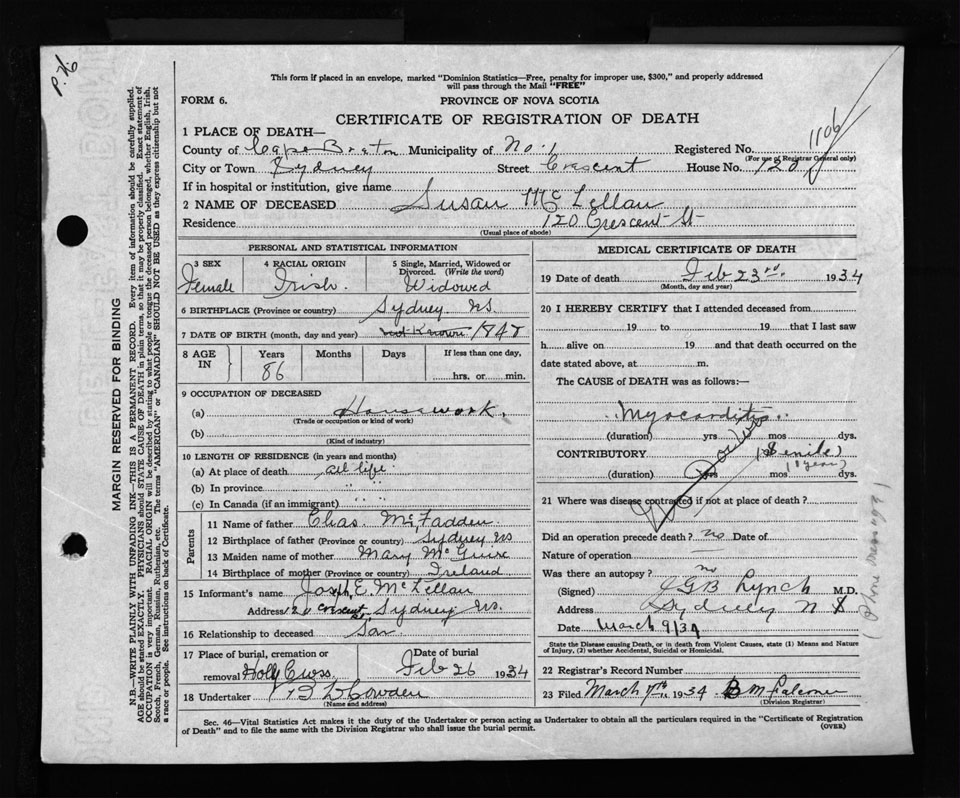 P. 76
This form if placed in an envelope, marked "Dominion Statistics—Free, penalty for improper use, $300," and properly addressed
will pass through the Mail "FREE"
FORM 6.
PROVINCE OF NOVA SCOTIA
CERTIFICATE OF REGISTRATION OF DEATH
1106
1 PLACE OF DEATH—
County of Cape Breton Municipality of No. 1 Registered No.
(For use of Registrar General only)
City or Town Sydney Street Crescent House No. 120
If in hospital or institution, give name
2 NAME OF DECEASED Susan McLellan
Residence 120 Crescent St
(Usual place of abode)
PERSONAL AND STATISTICAL INFORMATION
3 SEX
Female
4 RACIAL ORIGIN
Irish.
5 Single, Married, Widowed or
Divorced. (Write the word)
Widowed
6 BIRTHPLACE (Province or country) Sydney. NS.
7 DATE OF BIRTH (month, day and year) not known 1848
8 AGE
IN
Years
86
Months
Days
If less than one day,
hrs. or min.
9 OCCUPATION OF DECEASED
(a) Housework.
(Trade or occupation or kind of work)
(b)
(Kind of industry)
10 LENGTH OF RESIDENCE (in years and months)
(a) At place of death all life.
(b) In province " "
(c) In Canada (if an immigrant) " "
Parents
11 Name of father Chas. McFadden
12 Birthplace of father (Province or country) Sydney NS
13 Maiden name of mother Mary McGuire
14 Birthplace of mother (Province or country) Ireland
15 Informant's name Joseph E. McLellan
Address 120 Crescent St, Sydney NS.
16 Relationship to deceased Son
17 Place of burial, cremation or
removal Holly Cross.
Date of burial
Feb 26 1934
18 Undertaker
(Name and address)
MEDICAL CERTIFICATE OF DEATH
19 Date of death Feb 23rd. 1934
(Month, day and year)
20 I HEREBY CERTIFY that I attended deceased from
19 to 19 that I last saw
h alive on 19 and that death occurred on the
date stated above, at m.
The CAUSE of DEATH was as follows:—
Myocarditis
(duration) yrs mos dys.
CONTRIBUTORY (Senile)
(duration) yrs mos dys.
(1 year)
21 Where was disease contracted if not at place of death?
Did an operation precede death? no Date of
Nature of operation
Was there an autopsy? no
(Signed) JGB Lynch M.D.
Address Sydney N S
Date March 9/34
State the Disease causing Death, or in death from Violent Causes, state (1) Means and Nature
of Injury, (2) whether Accidental, Suicidal or Homicidal.
22 Registrar's Record Number
23 Filed March 1934 B M Falconer
(Division Registrar)
Sec. 46—Vital Statistics Act makes it the duty of the Undertaker or person acting as Undertaker to obtain all the particulars required in the "Certificate of Registration
of Death" and to file the same with the Division Registrar who shall issue the burial permit.
(OVER)
MARGIN RESERVED FOR BINDING
N.B.—WRITE PLAINLY WITH UNFADING INK—THIS IS A PERMANENT RECORD. Every item of information should be carefully supplied.
AGE should be stated EXACTLY. PHYSICIANS should STATE CAUSE OF DEATH in plain terms, so that it may be properly classified. Exact statement of
OCCUPATION is very important. RACIAL ORIGIN will be described by stating to what people or tongue the deceased person belonged, whether English, Irish,
Scotch, French, German, Russian, Ruthenian, etc. The terms "AMERICAN" or "CANADIAN" SHOULD NOT BE USED as they express citizenship but not
a race or people. See instructions on back of Certificate.